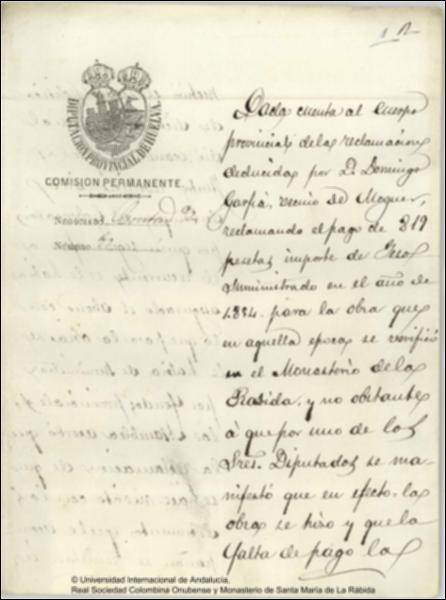 DIPUTACION PROVINCIAL DE HUELVA.
COMISION PERMANENTE.
Negociado
Número
Dada cuenta al Cuerpo
provincial de las reclamaciones
deducidas por D. Domingo
Garfia, vecino de Moguer,
reclamando el pago de 819
pesetas importe de Yeso
suministrado en el año de
1884. para la obra que
en aquella epoca se verificó
en el Monasterio de la
Rabida, y no obstante
á que por uno de los
Sres. Diputados se ma-
nifestó que en efecto las
obras se hizo y que la
falta de pago las
© Universidad Internacional de Andalucía,
Real Sociedad Colombina Onubense y Monasterio de Santa María de La Rábida